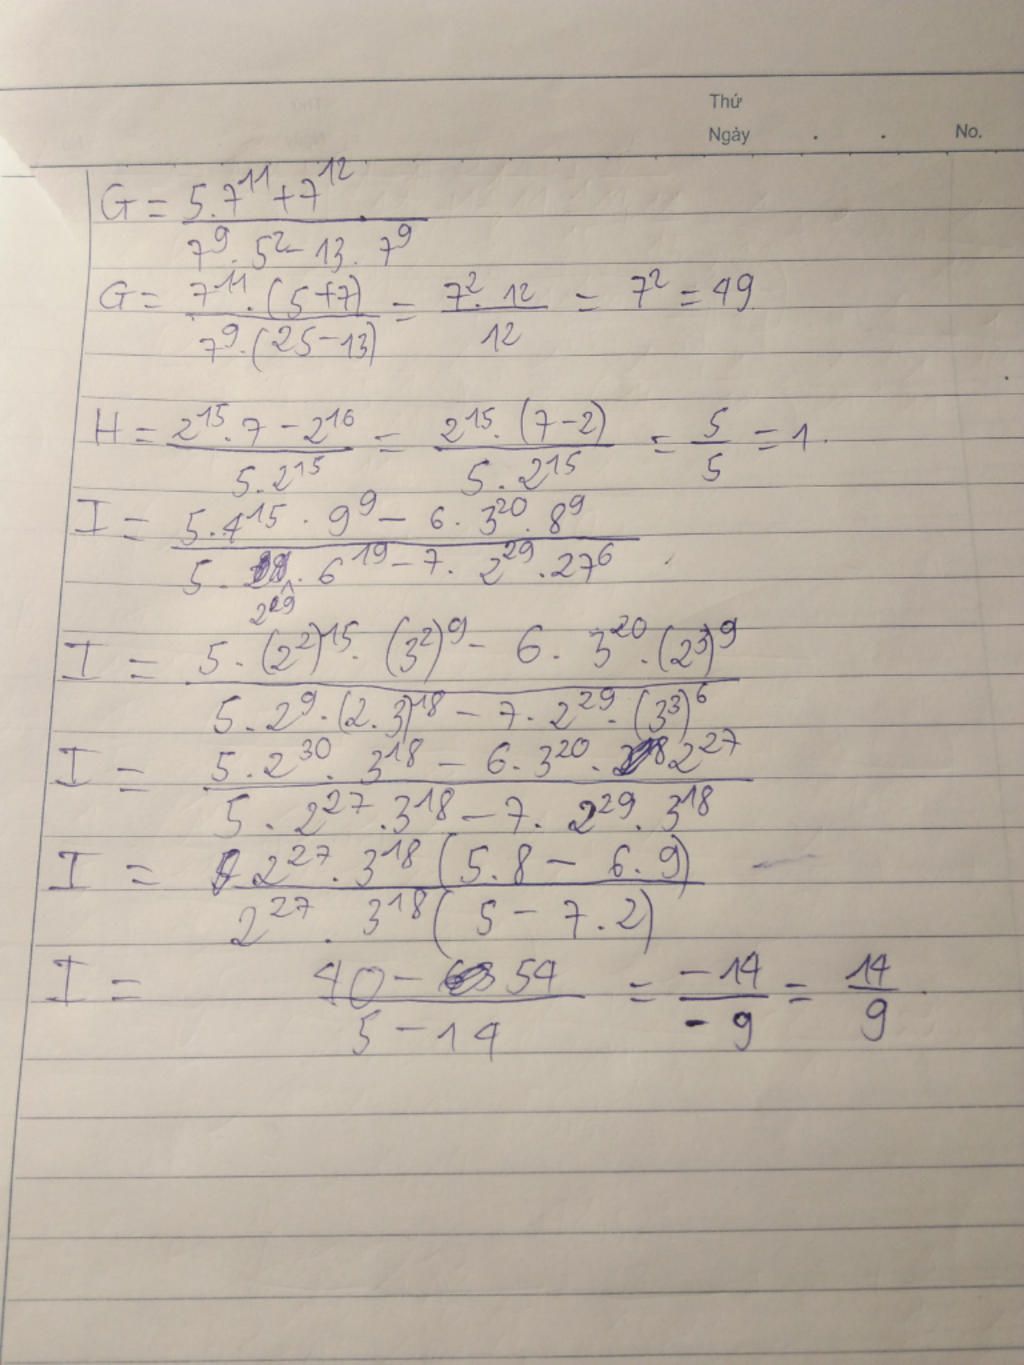 Thứ
Ngày . . No.
G = (5.7^11 + 7^12) / (7^9 . 5^2 - 13 . 7^9)
G = (7^11 . (5+7)) / (7^9 . (25-13)) = (7^2 . 12) / 12 = 7^2 = 49
H = (2^15 . 7 - 2^16) / (5 . 2^15) = (2^15 . (7-2)) / (5 . 2^15) = 5/5 = 1.
I = (5 . 4^15 . 9^9 - 6 . 3^20 . 8^9) / (5 . 2^29 . 6^19 - 7 . 2^29 . 27^6)
I = (5 . (2^2)^15 . (3^2)^9 - 6 . 3^20 . (2^3)^9) / (5 . 2^9 . (2.3)^18 - 7 . 2^29 . (3^3)^6)
I = (5 . 2^30 . 3^18 - 6 . 3^20 . 2^27) / (5 . 2^27 . 3^18 - 7 . 2^29 . 3^18)
I = (2^27 . 3^18 (5.8 - 6.9)) / (2^27 . 3^18 (5 - 7.2))
I = (40 - 54) / (5 - 14) = -14 / -9 = 14/9.